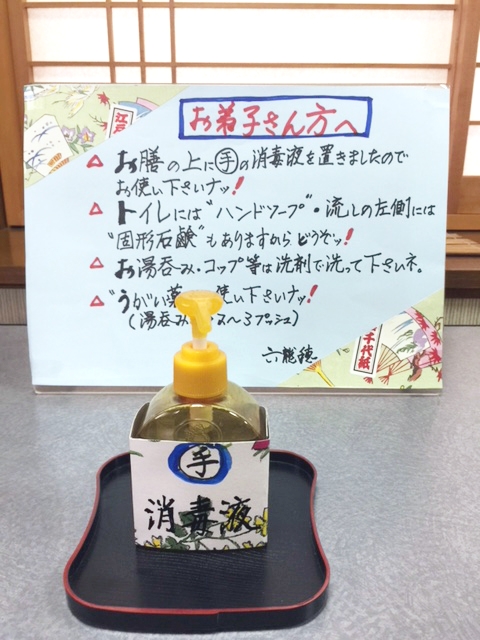 江戸
お弟子さん方へ
△ お膳の上に㊙手の消毒液を置きましたので
お使い下さいナッ!
△ トイレには"ハンドソープ"・流しの左側には
"固形石鹸"もありますからどうぞッ!
△ お湯呑み・コップ等は洗剤で洗って下さいネ。
△ "うがい薬 使い下さいナッ!
(湯呑み 2〜3プッシュ)
千代紙
手
消毒液